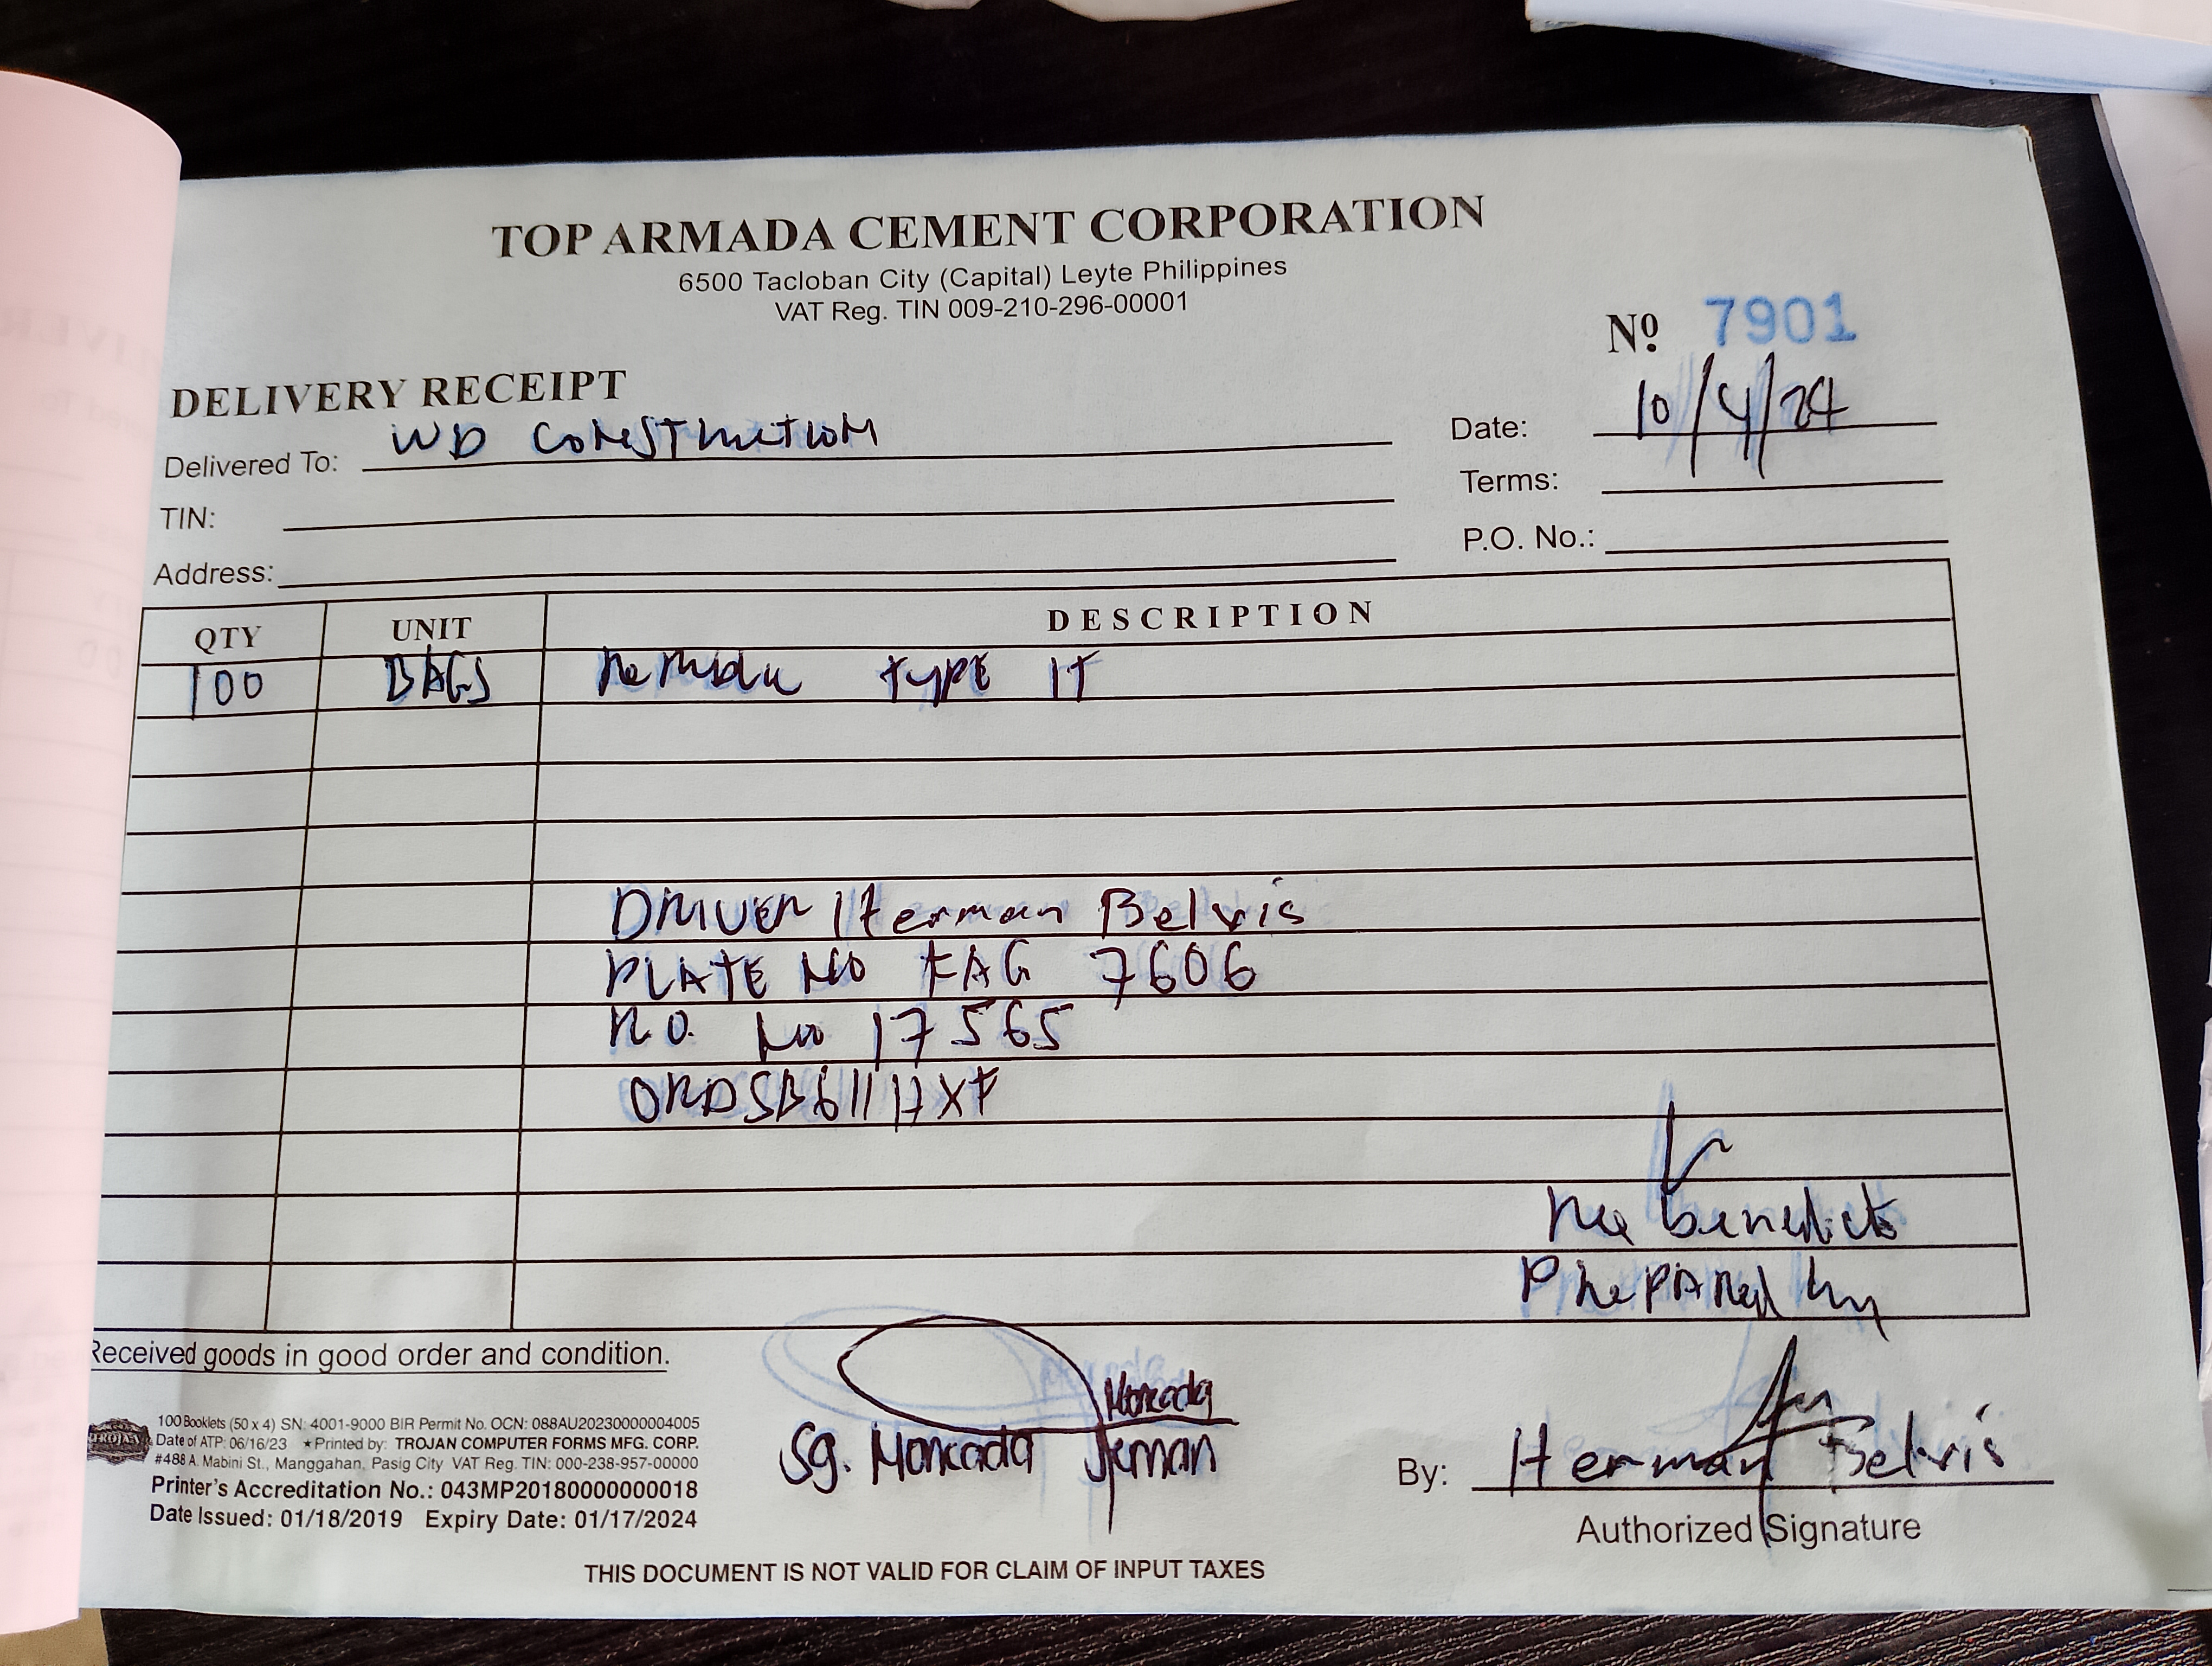 TOP ARMADA CEMENT CORPORATION
6500 Tacloban City (Capital) Leyte Philippines
VAT Reg. TIN 009-210-296-00001
Nº 7901
DELIVERY RECEIPT
Delivered To: WD CONSTRUCTION
Date: 10/4/24
TIN:
Terms:
Address:
P.O. No.:
QTY UNIT DESCRIPTION
100 BAGS TYPE 1T
DRIVER Herman Belvis
PLATE NO 7606
No 17565
benedicto
Prepared by
Received goods in good order and condition.
Moncada
Sg. Moncada Jeman
By: Herman Belvis
Authorized Signature
100 Booklets (50 x 4) SN: 4001-9000 BIR Permit No. OCN: 088AU20230000004005
TROJAN Date of ATP: 06/16/23 ★Printed by: TROJAN COMPUTER FORMS MFG. CORP.
#488 A. Mabini St., Manggahan, Pasig City VAT Reg. TIN: 000-238-957-00000
Printer's Accreditation No.: 043MP20180000000018
Date Issued: 01/18/2019 Expiry Date: 01/17/2024
THIS DOCUMENT IS NOT VALID FOR CLAIM OF INPUT TAXES